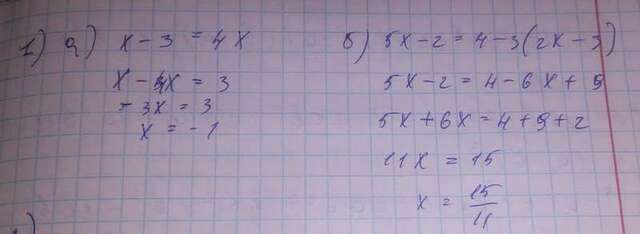 1) а) x - 3 = 4x
x - 4x = 3
- 3x = 3
x = - 1
б) 5x - 2 = 4 - 3(2x - 3)
5x - 2 = 4 - 6x + 9
5x + 6x = 4 + 9 + 2
11x = 15
x = 15/11